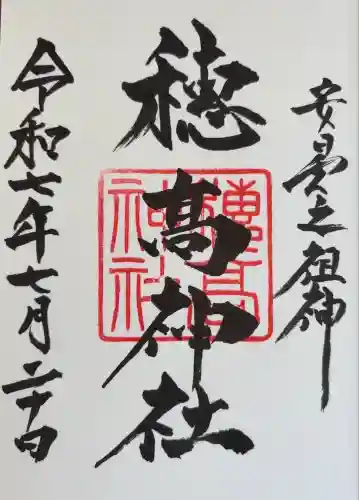 安曇之祖神
穂髙神社
穂高神社
令和七年七月二十日